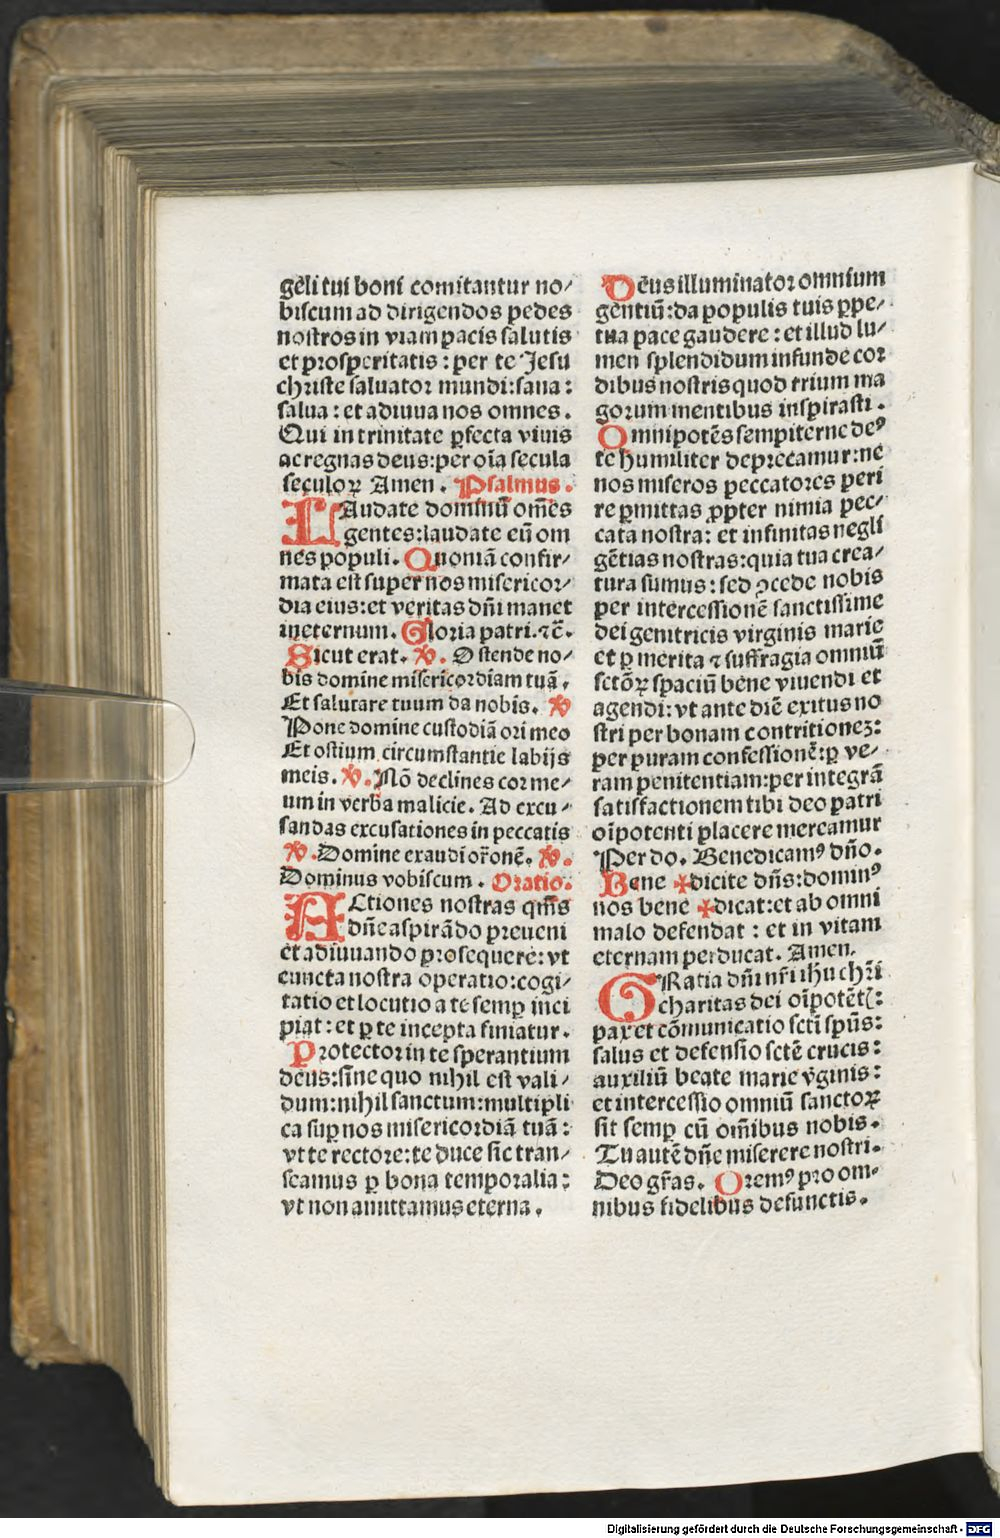 gēli tui boni comitantur no⸗
biscum ad dirigendos pedes
nostros in viam pacis salutis
et prosperitatis : per te Jesu
christe saluator mundi: sana :
salua : et adiuua nos omnes .
Qui in trinitate ꝑfecta viuis
ac regnas deus: per oīa secula
seculoꝝ Amen . Psalmus .
LAudate dominū om̄es
gentes: laudate eū om
nes populi . Quoniā confir⸗
mata est super nos misericor⸗
dia eius: et veritas dn̄i manet
ineternum . Gloria patri. ⁊c̄ .
Sicut erat . ℣ . Ostende no⸗
bis domine misericordiam tuā .
Et salutare tuum da nobis . ℣
Pone domine custodiā ori meo
Et ostium circumstantie labijs
meis . ℣ . Nō declines cor me⸗
um in verba malicie . Ad excu⸗
sandas excusationes in peccatis
℣ . Domine exaudi or̄onē . ℣ .
Dominus vobiscum . Oratio .
ACtiones nostras qm̄s
dn̄e aspirādo preueni
et adiuuando prosequere: vt
cuncta nostra operatio: cogi⸗
tatio et locutio a te semꝑ inci
piat : et ꝑ te incepta finiatur .
Protector in te sperantium
deus: sine quo nihil est vali⸗
dum: nihil sanctum: multipli
ca suꝑ nos misericordiā tuā :
vt te rectore: te duce sic tran⸗
seamus ꝑ bona temporalia :
vt non amittamus eterna .
Dēus illuminator omnium
gentiū: da populis tuis ꝑpe⸗
tua pace gaudere : et illud lu⸗
men splendidum infunde cor
dibus nostris quod trium ma
gorum mentibus inspirasti .
Omnipotēs sempiterne deꝰ
te humiliter deprecamur: ne
nos miseros peccatores peri
re ꝑmittas ꝓpter nimia pec⸗
cata nostra : et infinitas negli
gētias nostras: quia tua crea⸗
tura sumus : sed ꝯcede nobis
per intercessionē sanctissime
dei genitricis virginis marie
et ꝑ merita ⁊ suffragia omniū
sctōꝝ spaciū bene viuendi et
agendi: vt ante diē exitus no
stri per bonam contritionez :
per puram confessionē: ꝑ ve⸗
ram penitentiam: per integrā
satisfactionem tibi deo patri
oīpotenti placere mereamur
Per do . Benedicamꝰ dn̄o .
Bene ✠dicite dn̄s: dominꝰ
nos bene ✠dicat: et ab omni
malo defendat : et in vitam
eternam perducat . Amen .
GRatia dn̄i nr̄i ihu chr̄i
charitas dei oīpotēt̄ :
pax et cōmunicatio sctī sp̄us :
salus et defensio sctē crucis :
auxiliū beate marie v̄ginis :
et intercessio omniū sanctoꝝ
sit semꝑ cū om̄ibus nobis .
Tu autē dn̄e miserere nostri .
Deo gr̄as . Oremꝰ pro om⸗
nibus fidelibus defunctis .
Digitalisierung gefördert durch die Deutsche Forschungsgemeinschaft - DFG